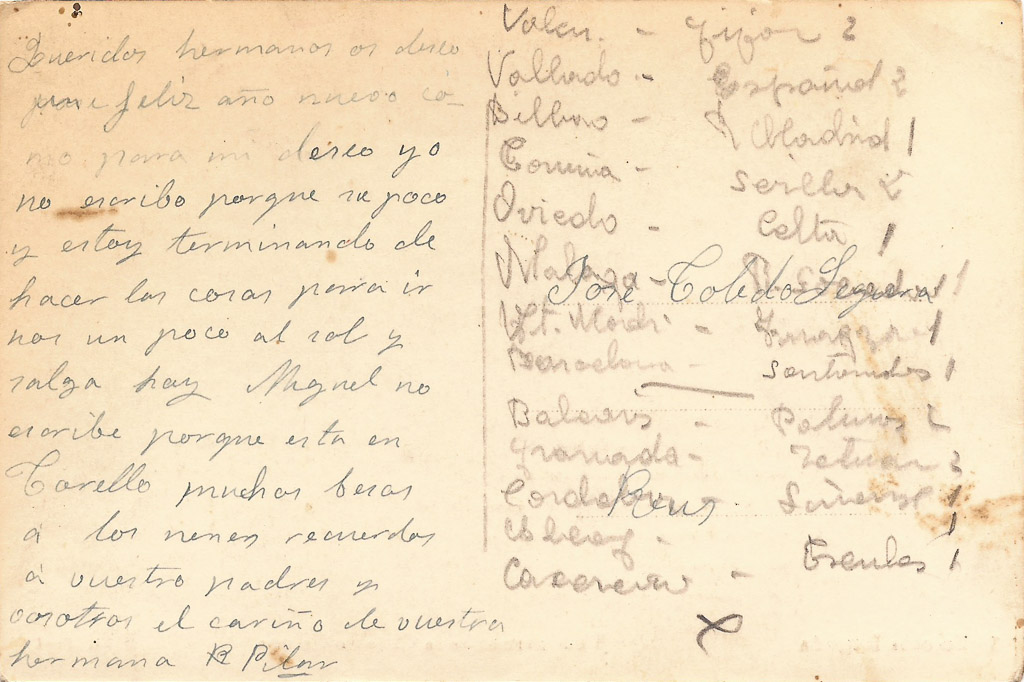 Queridos hermanos os deseo
feliz año nuevo co-
mo para mi deseo yo
no escribo porque se poco
y estoy terminando de
hacer las cosas para ir
nos un poco al sol y
salga hay Miguel no
escribe porque esta en
Torello muchos besos
a los nenes recuerdos
a vuestro padres y
vosotros el cariño de vuestra
hermana Pilar
Valen. - Gijon 2
Vallado - Español 2
Bilbao - Madrid 1
Coruña - Sevilla 2
Oviedo - Celta 1
Malaga - 1
José Toledo Segura
At. Madri - Zaragoza 1
Barcelona - Santander 1
Baleares - Palmas 2
Granada - Tetuan 2
Cordoba 1
Reus
1
- Ercules 1
X